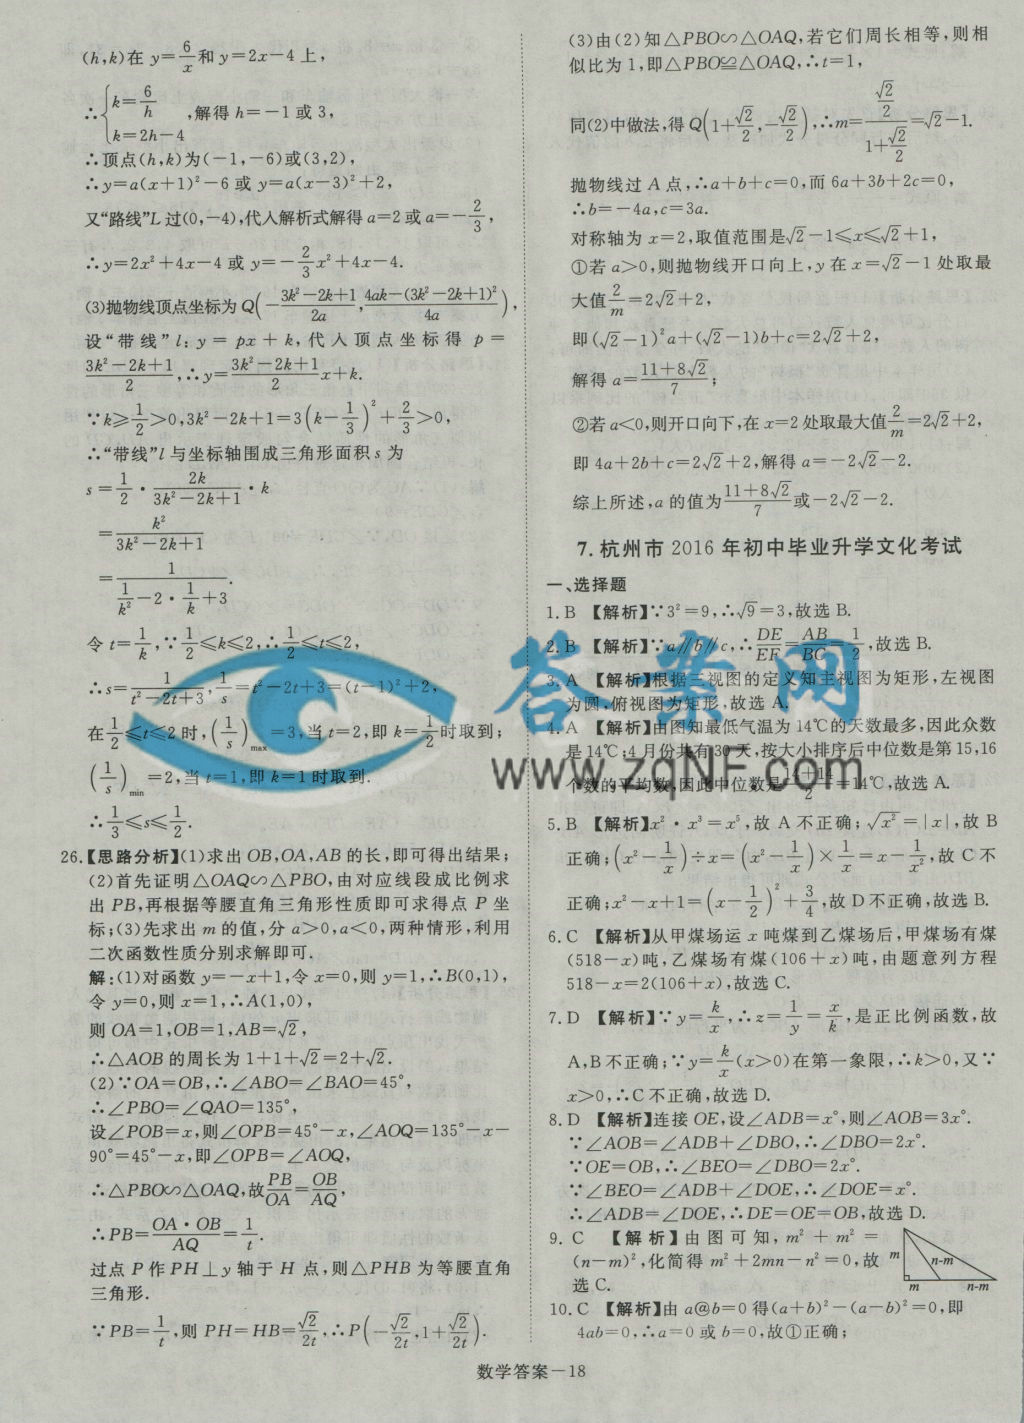 (h,k)在 y=6/x 和 y=2x-4 上,
∴{k=6/h, k=2h-4 ,解得 h=-1 或 3,
∴顶点(h,k)为(-1,-6)或(3,2),
∴y=a(x+1)²-6 或 y=a(x-3)²+2,
又“路线”L 过(0,-4),代入解析式解得 a=2 或 a=-2/3,
∴y=2x²+4x-4 或 y=-2/3x²+4x-4.
(3)抛物线顶点坐标为 Q(-(3k²-2k+1)/2a, (4ak-(3k²-2k+1)²)/4a),
设“带线”l: y=px+k,代入顶点坐标得 p=
(3k²-2k+1)/2,∴y=(3k²-2k+1)/2 x+k.
∵k≥1/2>0,3k²-2k+1=3(k-1/3)²+2/3>0,
∴“带线”l 与坐标轴围成三角形面积 s 为
s=1/2·2k/(3k²-2k+1)·k
=k²/(3k²-2k+1)
=1/(1/k²-2·1/k+3).
令 t=1/k,∵1/2≤k≤2,∴1/2≤t≤2,
∴s=1/(t²-2t+3),1/s=t²-2t+3=(t-1)²+2,
在1/2≤t≤2 时,(1/s)max=3,当 t=2,即 k=1/2时取到;
(1/s)min=2,当 t=1,即 k=1 时取到.
∴1/3≤s≤1/2.
26.【思路分析】(1)求出 OB,OA,AB 的长,即可得出结果;
(2)首先证明△OAQ∽△PBO,由对应线段成比例求
出 PB,再根据等腰直角三角形性质即可求得点 P 坐
标;(3)先求出 m 的值,分 a>0,a<0,两种情形,利用
二次函数性质分别求解即可.
解:(1)对函数 y=-x+1,令 x=0,则 y=1,∴B(0,1),
令 y=0,则 x=1,∴A(1,0),
则 OA=1,OB=1,AB=√2,
∴△AOB 的周长为 1+1+√2=2+√2.
(2)∵OA=OB,∴∠ABO=∠BAO=45°,
∴∠PBO=∠QAO=135°,
设∠POB=x,则∠OPB=45°-x,∠AOQ=135°-x-
90°=45°-x,即∠OPB=∠AOQ,
∴△PBO∽△OAQ,故PB/OA=OB/AQ,
∴PB=OA·OB/AQ=1/t.
过点 P 作 PH⊥y 轴于 H 点,则△PHB 为等腰直角
三角形.
∵PB=1/t,则 PH=HB=√2/2t,∴P(-√2/2t,1+√2/2t).
(3)由(2)知△PBO∽△OAQ,若它们周长相等,则相
似比为 1,即△PBO≌△OAQ,∴t=1,
同(2)中做法,得 Q(1+√2/2,-√2/2),∴m=(√2/2)/(1+√2/2)=√2-1.
抛物线过 A 点,∴a+b+c=0,而 6a+3b+2c=0,
∴b=-4a,c=3a.
对称轴为 x=2,取值范围是√2-1≤x≤√2+1,
①若 a>0,则抛物线开口向上,y 在 x=√2-1 处取最
大值2/m=2√2+2,
即(√2-1)²a+(√2-1)b+c=2√2+2,
解得 a=(11+8√2)/7;
②若 a<0,则开口向下,在 x=2 处取最大值2/m=2√2+2,
即 4a+2b+c=2√2+2,解得 a=-2√2-2.
综上所述,a 的值为(11+8√2)/7或-2√2-2.
7.杭州市 2016 年初中毕业升学文化考试
一、选择题
1.B 【解析】∵3²=9,∴√9=3,故选 B.
2.B 【解析】∵a∥b∥c,∴DE/EF=AB/BC=1/2,故选 B.
3.A 【解析】根据三视图的定义知主视图为矩形,左视图
为圆,俯视图为矩形,故选 A.
4.A 【解析】由图知最低气温为 14℃的天数最多,因此众数
是 14℃;4 月份共有 30 天,按大小排序后中位数是第 15,16
个数的平均数,因此中位数是(14+14)/2=14℃,故选 A.
5.B 【解析】x²·x³=x⁵,故 A 不正确;√x²=|x|,故 B
正确;(x²-1/x)÷x=(x²-1/x)×1/x=x-1/x²,故 C 不
正确;x²-x+1=(x-1/2)²+3/4,故 D 不正确,故选 B.
6.C 【解析】从甲煤场运 x 吨煤到乙煤场后,甲煤场有煤
(518-x)吨,乙煤场有煤(106+x)吨,由题意列方程
518-x=2(106+x),故选 C.
7.D 【解析】∵y=k/x,∴z=1/y=x/k,是正比例函数,故
A,B 不正确;∵y=k/x(x>0)在第一象限,∴k>0,又∵
x>0,∴C 不正确,故选 D.
8.D 【解析】连接 OE,设∠ADB=x°,则∠AOB=3x°.
∵∠AOB=∠ADB+∠DBO,∴∠DBO=2x°.
∵OE=OB,∴∠BEO=∠DBO=2x°.
∵∠BEO=∠ADB+∠DOE,∴∠DOE=x°.
∴∠ADB=∠DOE,∴DE=OE=OB,故选 D.
9.C 【解析】由图可知, m²+m²=
(n-m)²,化简得 m²+2mn-n²=0,故
选 C.
m
n-m
m
n-m
10.C 【解析】由 a@b=0 得(a+b)²-(a-b)²=0,即
4ab=0,∴a=0 或 b=0,故①正确;
答案网
www.zqNF.com
数学答案-18